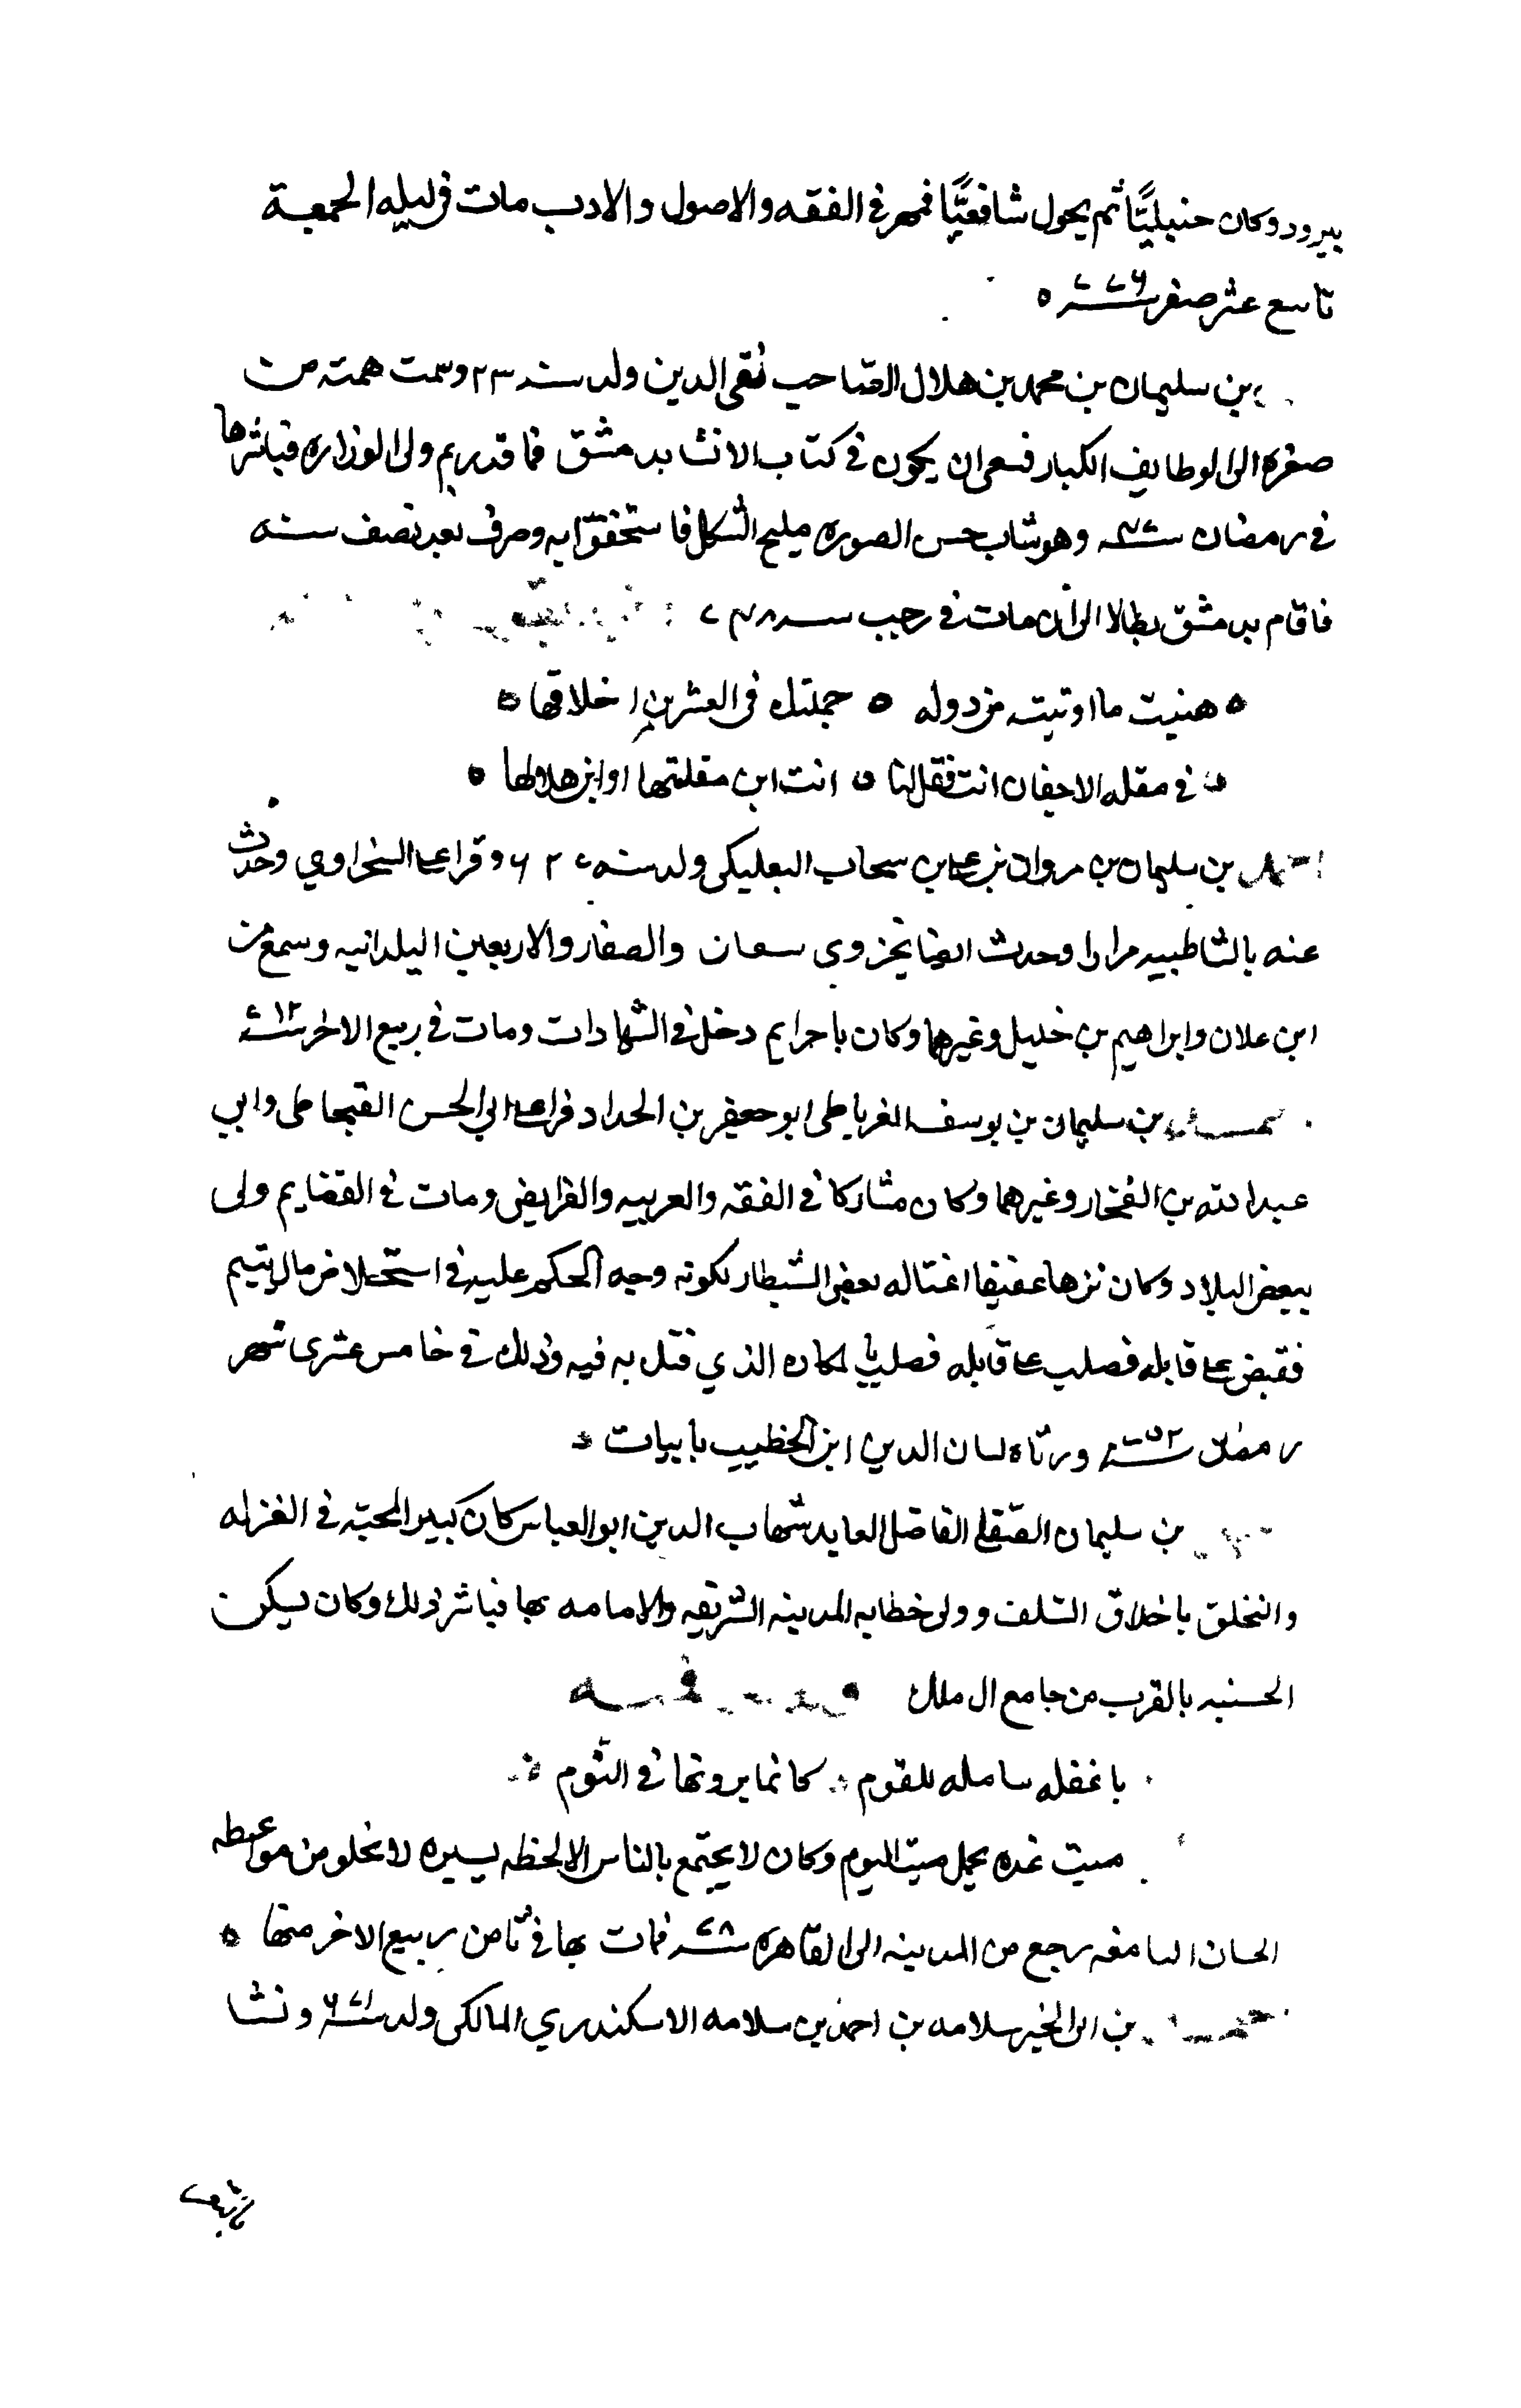 ببيرود وكان حنبليًّا ثم تحول شافعيًّا فمهر في الفقه والاصول والادب مات في ليله الجمعة
تاسع عشر صفر سنه ٧٧٦ ه
بن سليمان بن محمد بن هلال الصاحب تقي الدين ولد سنه وسمت همته من
صغره الى الوطايف الكبار فسعى ان يكون في كتاب الانشا بدمشق فما قدر ثم ولى الوزاره فباشرها
في رمضان سنه وهو شاب حسن الصوره مليح الشكل فاستخفوا به وصرف بعد نصف سنه
فاقام بدمشق بطالا الى ان مات في رجب سنه
ه هنيت ما اوتيته من دوله ه حملتك في العينين اخلاقها ه
ه في مقله الاجفان انت فقل لنا ه انت ابن مقلتها او ابن هلالها ه
احمد بن سليمان بن مروان بن علي بن سحاب البعلبكي ولد سنه وقرا على السخاوي وحدث
عنه بالشاطبيه مرارا وحدث ايضا بجزوى سعان والصفار والاربعين البلدانيه وسمع من
ابن علان وابراهيم بن خليل وغيرهما وكان تاجرا ثم دخل في الشهادات ومات في ربيع الاخر سنه ٧١٢
بن سليمان بن يوسف الغرناطي ابو جعفر بن الحداد قرا على ابي الحسن القيجاطي وابي
عبد الله بن الفخار وغيرهما وكان مشاركا في الفقه والعربيه والفرايض ومات في القضا ثم ولى
ببعض البلاد وكان نزها عفيفا اغتاله بعض الشطار لكونه وجه الحكم عليه في استخلاص مال يتيم
فقبض على قاتله فصلب على قاتله فصلب بالمكان الذي قتل به فيه وذلك في خامس عشرى شهر
رمضان سنه ٧٥٢ ورثاه لسان الدين ابن الخطيب بابيات ه
بن سليمان الصقلي الفاضل العابد شهاب الدين ابو العباس كان كبير المحبه في العزله
والتخلق باخلاق السلف وولى خطابه المدينه الشريفه والامامه بها فباشر ذلك وكان يسكن
الحسنيه بالقرب من جامع ال ملك
يا غفله شامله للقوم كانما يرونها في النوم
ميت غد يحمل ميت اليوم وكان لا يجتمع بالناس الا لحظه يسيره لا تخلو من مواعظه
الحسان النافعه رجع من المدينه الى القاهره سنه ٧٨ فمات بها في ثامن ربيع الاخر منها ه
بن ابي الخير سلامه بن احمد بن سلامه الاسكندري المالكي ولد سنه ٦٧١ ونشا